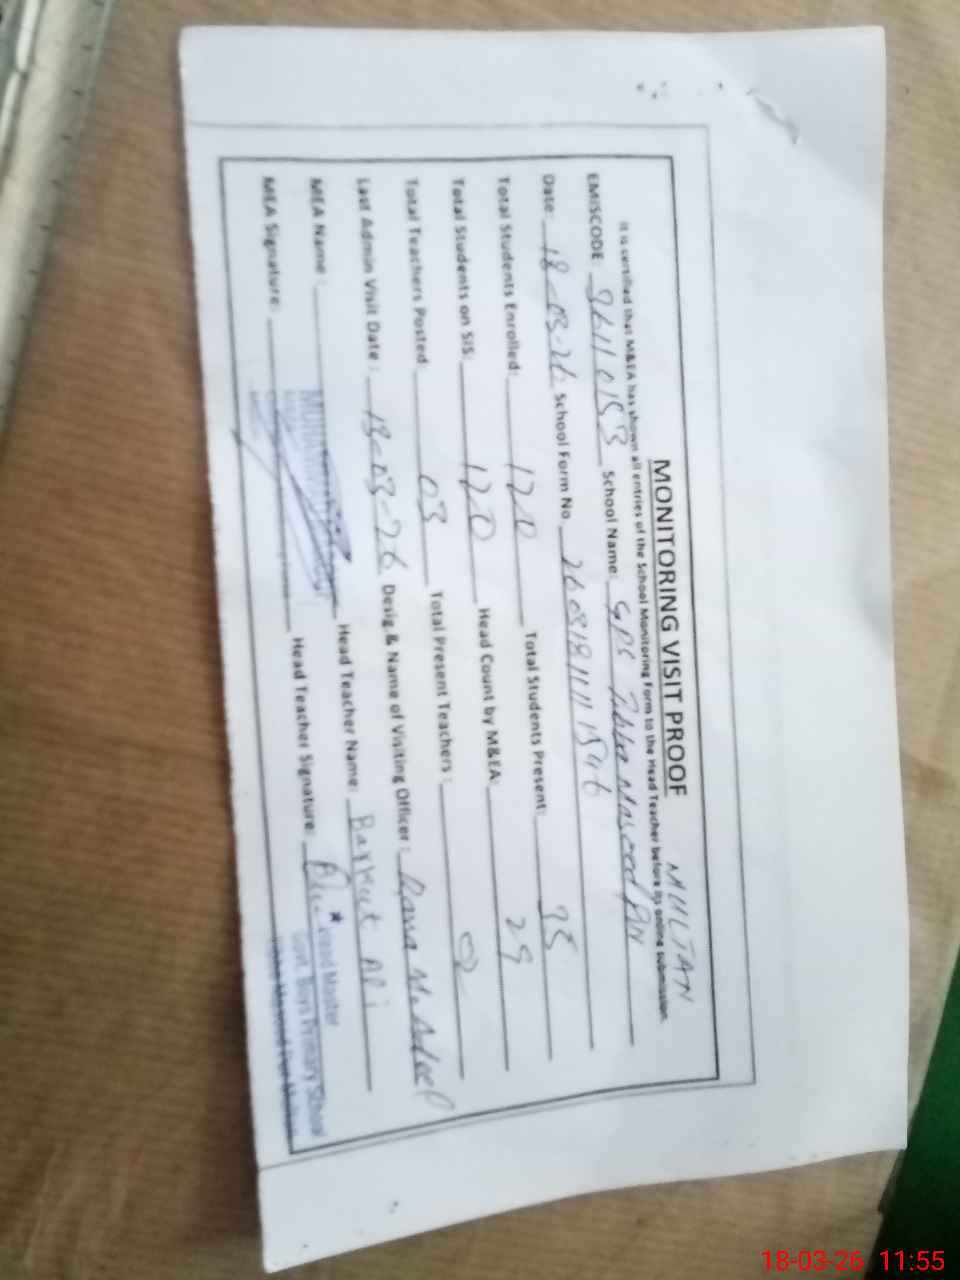 MONITORING VISIT PROOF MULTAN
It is certified that M&EA has shown all entries of the School Monitoring Form to the Head Teacher before its online submission.
EMISCODE 36110153 School Name: GPS Masood Pur
Date: 18-03-26 School Form No 26031811111546
Total Students Enrolled: 120 Total Students Present: 35
Total Students on SIS: 120 Head Count by M&EA: 29
Total Teachers Posted: 03 Total Present Teachers: 02
Last Admin Visit Date: 13-03-26 Desig & Name of Visiting Officer: Rana M.
MEA Name: Head Teacher Name: Barkat Ali
MEA Signature: Head Teacher Signature:
Head Master
Govt. Boys Primary School
Masood Pur
18-03-26 11:55